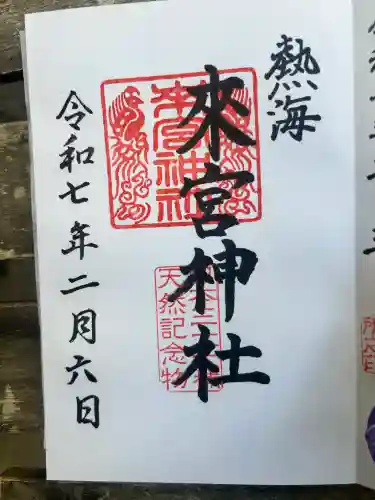 熱海
來宮神社
来宮神社
天然記念物
令和七年二月六日